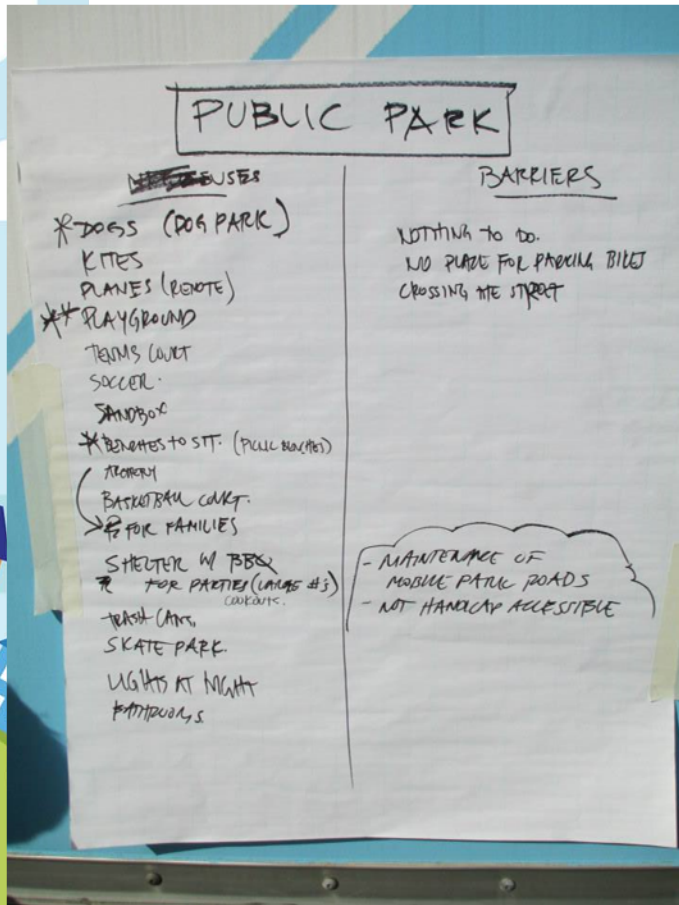 PUBLIC PARK
USES
* DOGS (DOG PARK)
KITES
PLANES (REMOTE)
** PLAYGROUND
TENNIS COURT
SOCCER.
SANDBOX
* BENCHES TO SIT. (PICNIC BENCHES)
ARCHERY
BASKETBALL COURT.
FOR FAMILIES
SHELTER W/ BBQ
FOR PARTIES (LARGE #'s)
COOKOUTS.
TRASH CANS.
SKATE PARK.
LIGHTS AT NIGHT
BATHROOMS
BARRIERS
NOTHING TO DO.
NO PLACE FOR PARKING BIKES
CROSSING THE STREET
- MAINTENANCE OF
MOBILE PARK ROADS
- NOT HANDICAP ACCESSIBLE